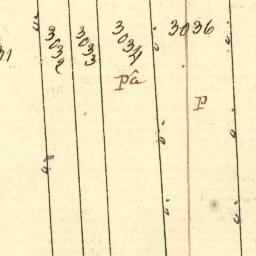 31
3032
3033
3034
3036
pâ
P